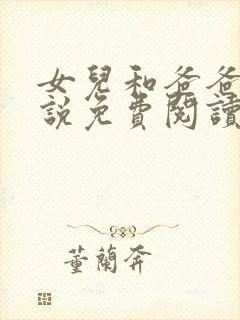 女兒和爸爸
說免費閱讀
董蘭奔